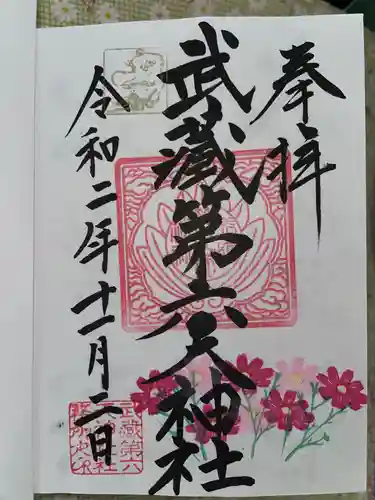 奉拝
武蔵第六天神社
令和二年十一月二日
武蔵第六